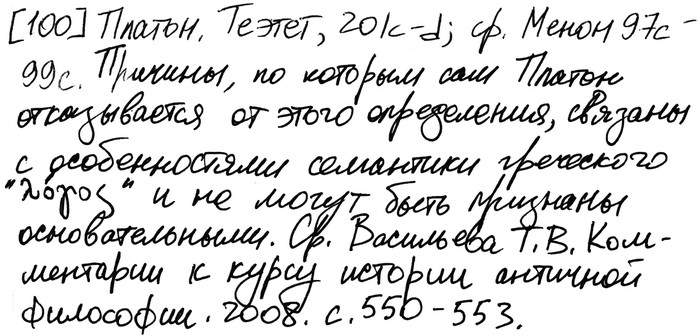 [100] Платон. Теэтет, 201c-d; ср. Менон 97c-
99c. Причины, по которым сам Платон
отказывается от этого определения, связаны
с особенностями семантики греческого
"λόγος" и не могут быть признаны
основательными. Ср. Васильева Т.В. Ком-
ментарии к курсу истории античной
философии. 2008. с. 550-553.